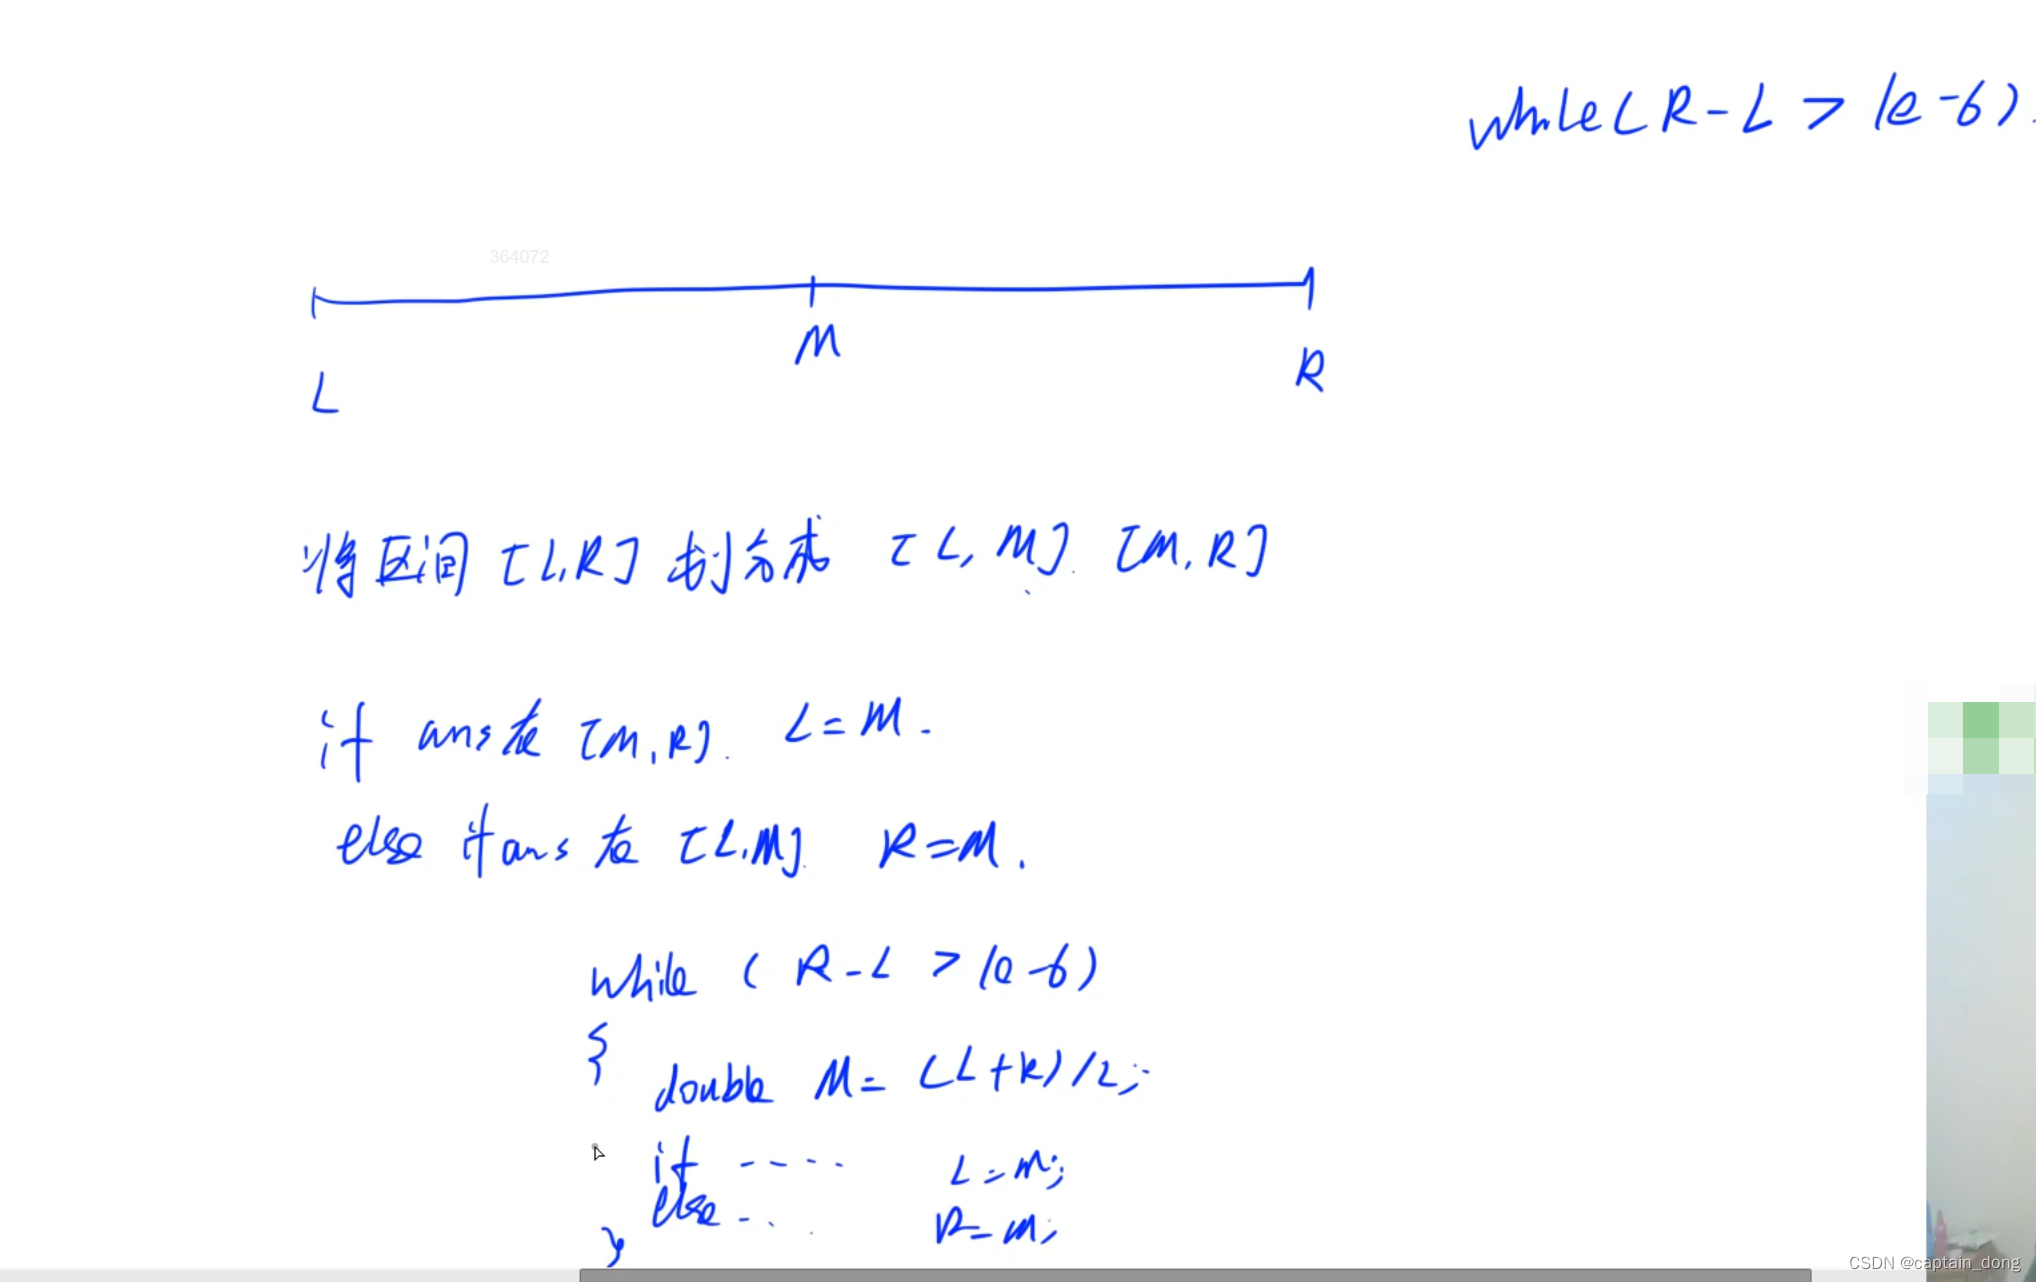 while(R-L > 1e-6)
364072
M
R
L
将区间 [L,R] 划分成 [L,M] [M,R]
if ans在 [M,R]. L=M.
else if ans 在 [L,M] R=M.
while (R-L > 1e-6)
{
double M=(L+R)/2;
if ---- L=M;
else -.. R=M;
}
CSDN @captain_dong